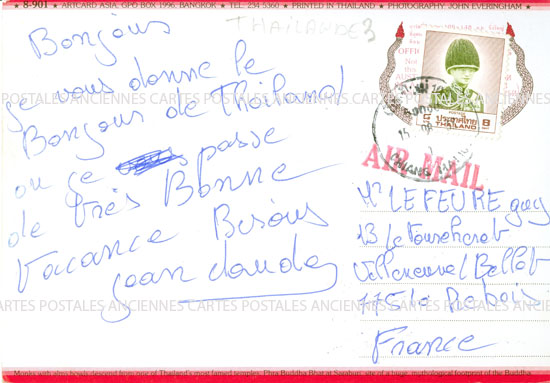 8-901 ★ ARTCARD ASIA, GPO BOX 1996, BANGKOK ★ TEL. 234 5360 ★ PRINTED IN THAILAND ★ PHOTOGRAPHY: JOHN EVERINGHAM ★
THAILANDE 3
Bonjour
je vous donne le
Bonjour de Thailand
ou je passe
de très Bonne
Vacance Bisous
jean claude
ประเทศไทย
THAILAND
8
AIR MAIL
Mr LEFEURE guy
13 le
Villeneuve Bellot
77510 Rebais
France
CARTES POSTALES ANCIENNES CARTES POSTALES ANCIENNES CARTES POSTALES ANCIENNES
Monks with alms bowls descend from one of Thailand's most famed temples, Phra Buddha Bhat at Saraburi, site of a huge, mythological footprint of the Buddha.